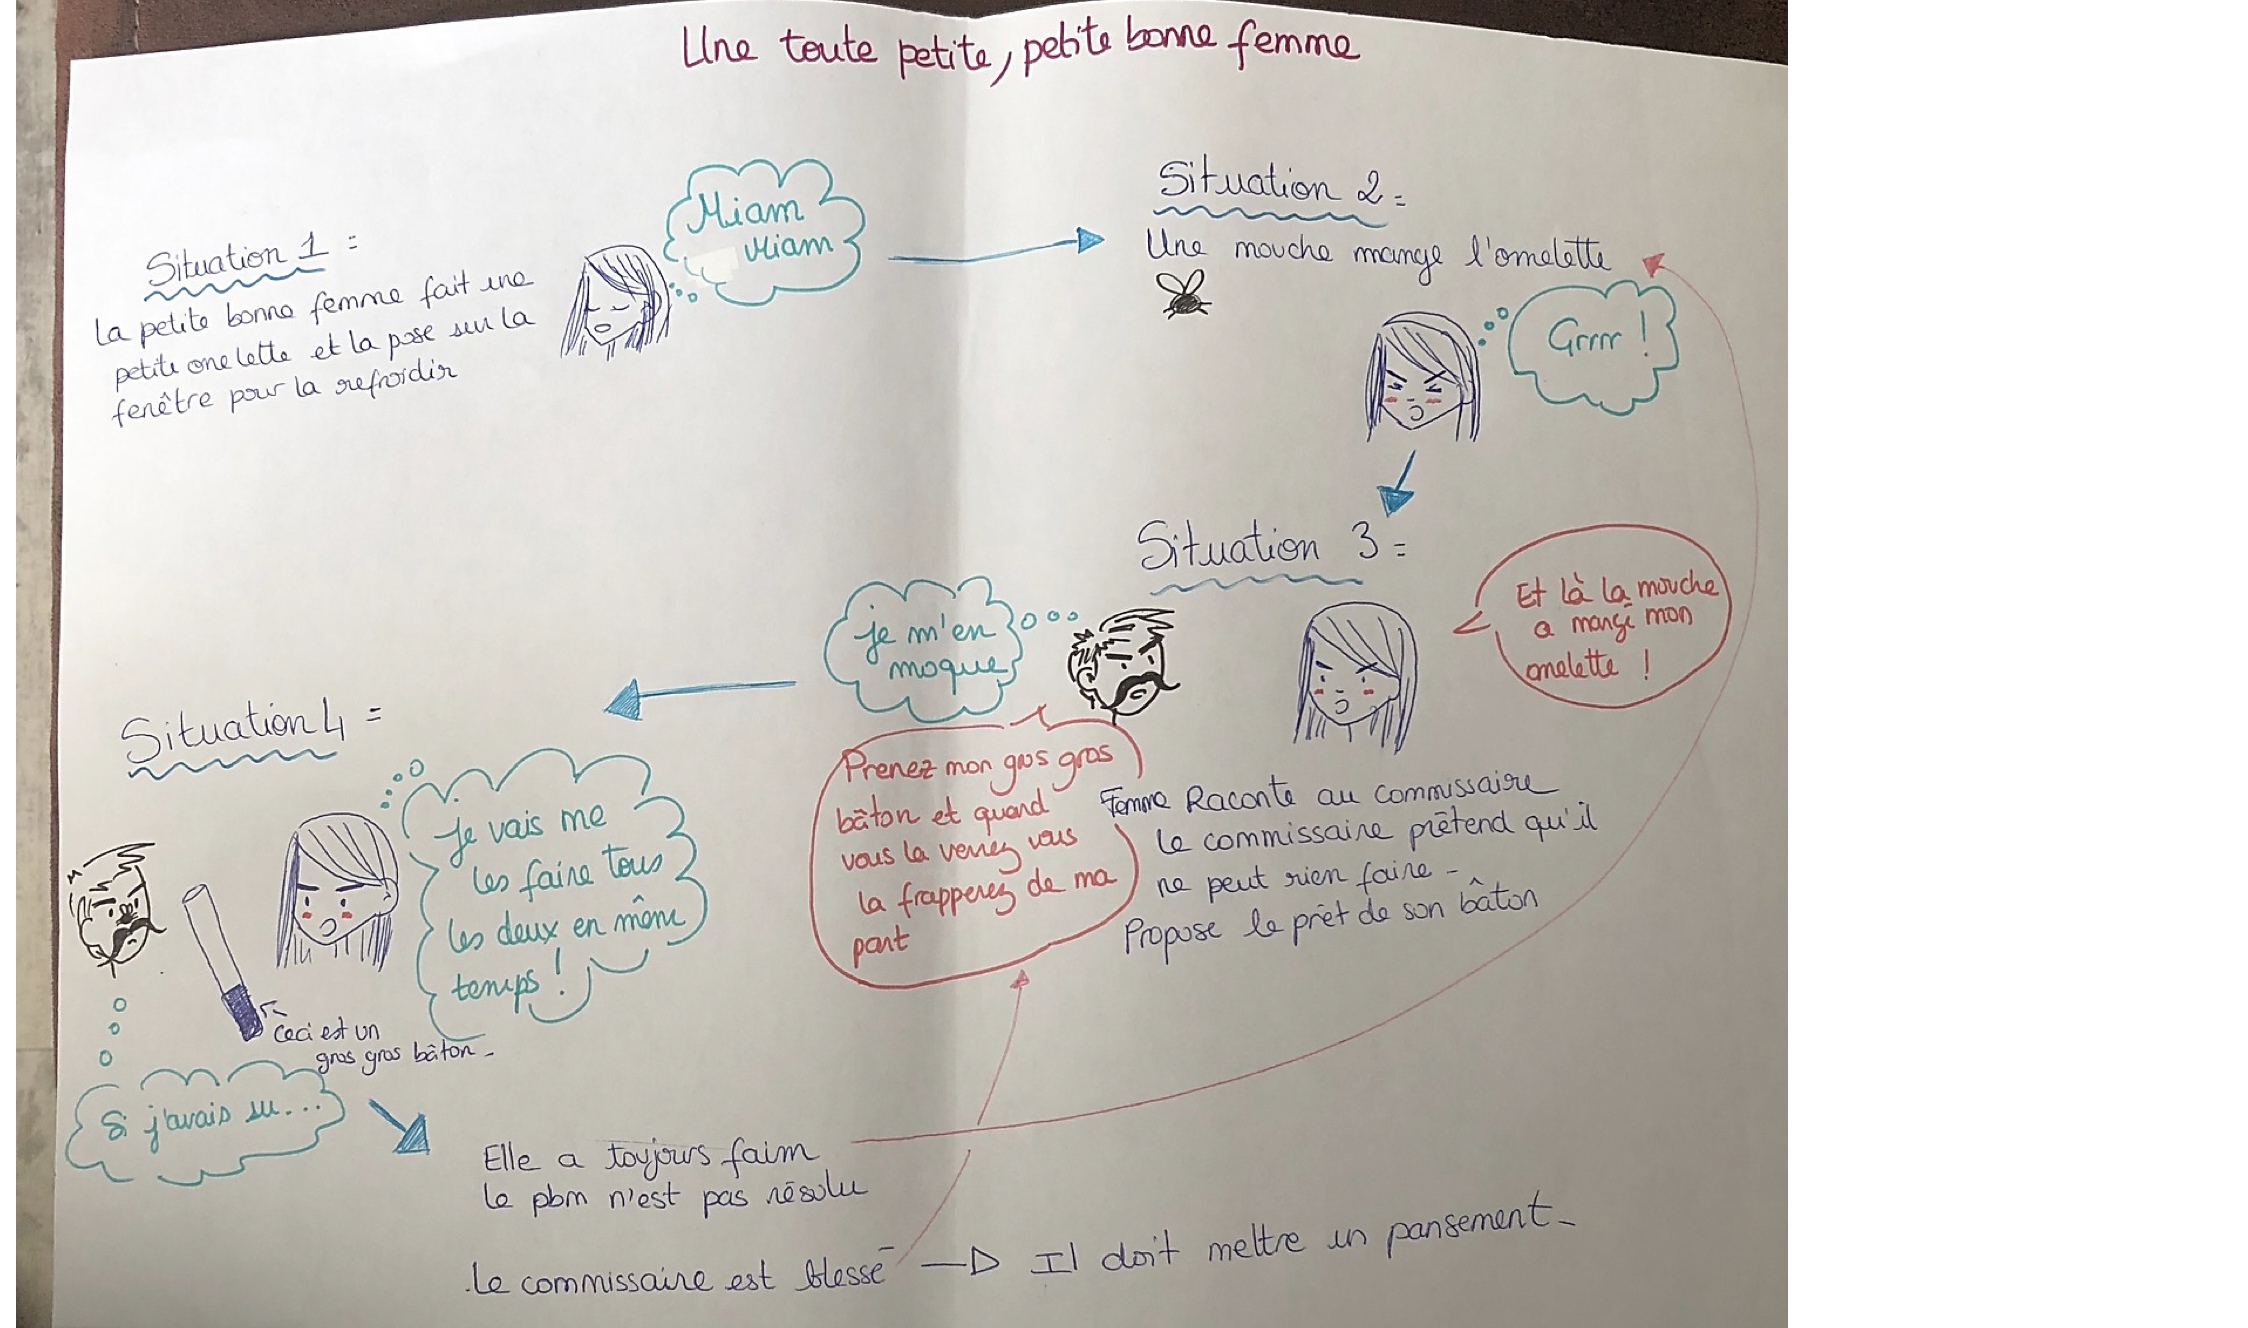 Une toute petite, petite bonne femme
Situation 1 =
La petite bonne femme fait une
petite omelette et la pose sur la
fenêtre pour la refroidir
Miam
Miam
Situation 2 =
Une mouche mange l'omelette
Grrrr !
Situation 3 =
Et là la mouche
a mangé mon
omelette !
je m'en
moque
Prenez mon gros gros
bâton et quand
vous la verrez vous
la frapperez de ma
part
Femme Raconte au commissaire
Le commissaire prétend qu'il
ne peut rien faire -
Propose le prêt de son bâton
Situation 4 =
Je vais me
les faire tous
les deux en même
temps !
Ceci est un
gros gros bâton -
Si j'avais su...
Elle a toujours faim
Le pbm n'est pas résolu
Le commissaire est blessé → Il doit mettre un pansement -